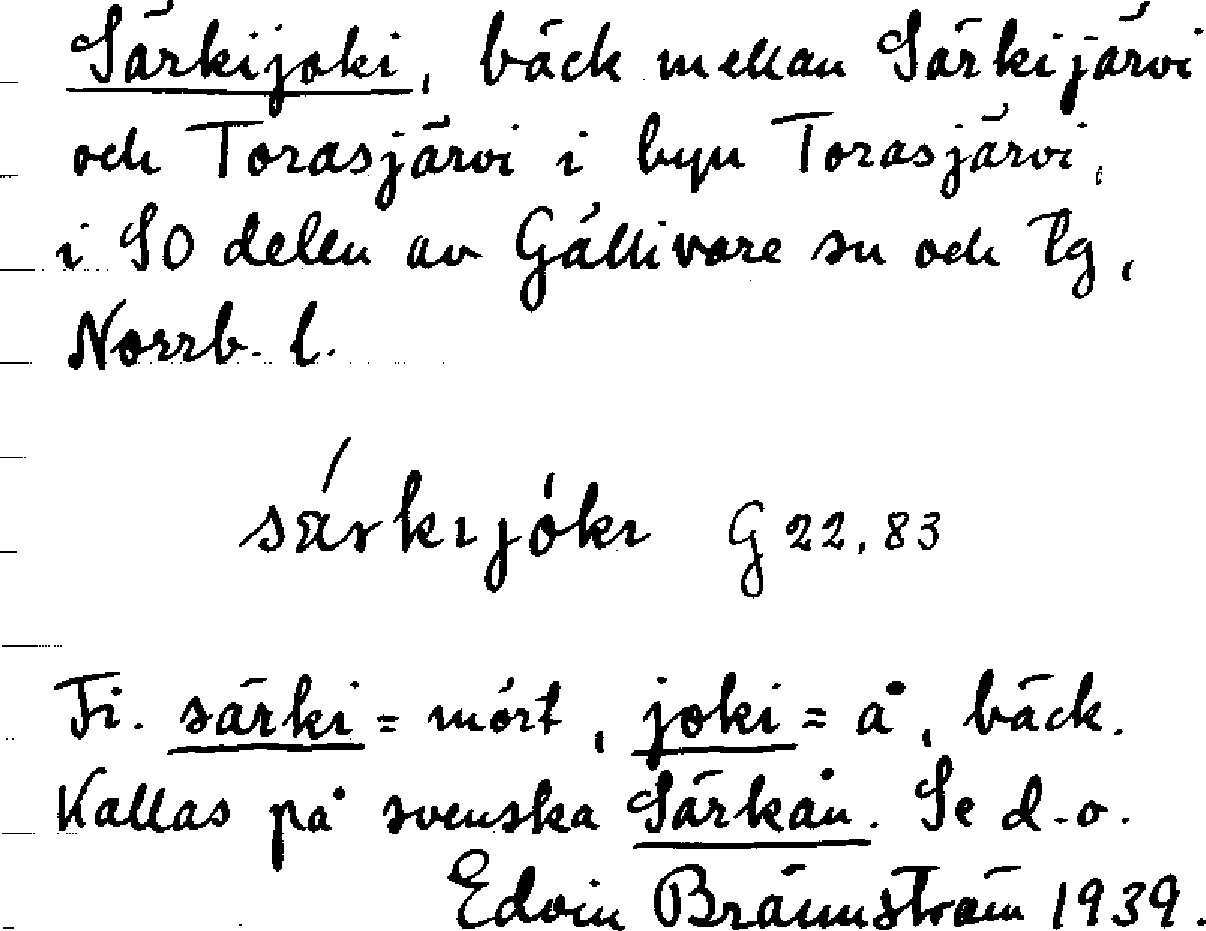 Särkijoki, bäck mellan Särkijärvi
och Torasjärvi i byn Torasjärvi,
i SO delen av Gällivare sn och tg,
Norrb. l.
sä́rkıjókı G 22,83
Fi. särki = mört, joki = å, bäck.
Kallas på svenska Särkån. Se d.o.
Edvin Brännström 1939.